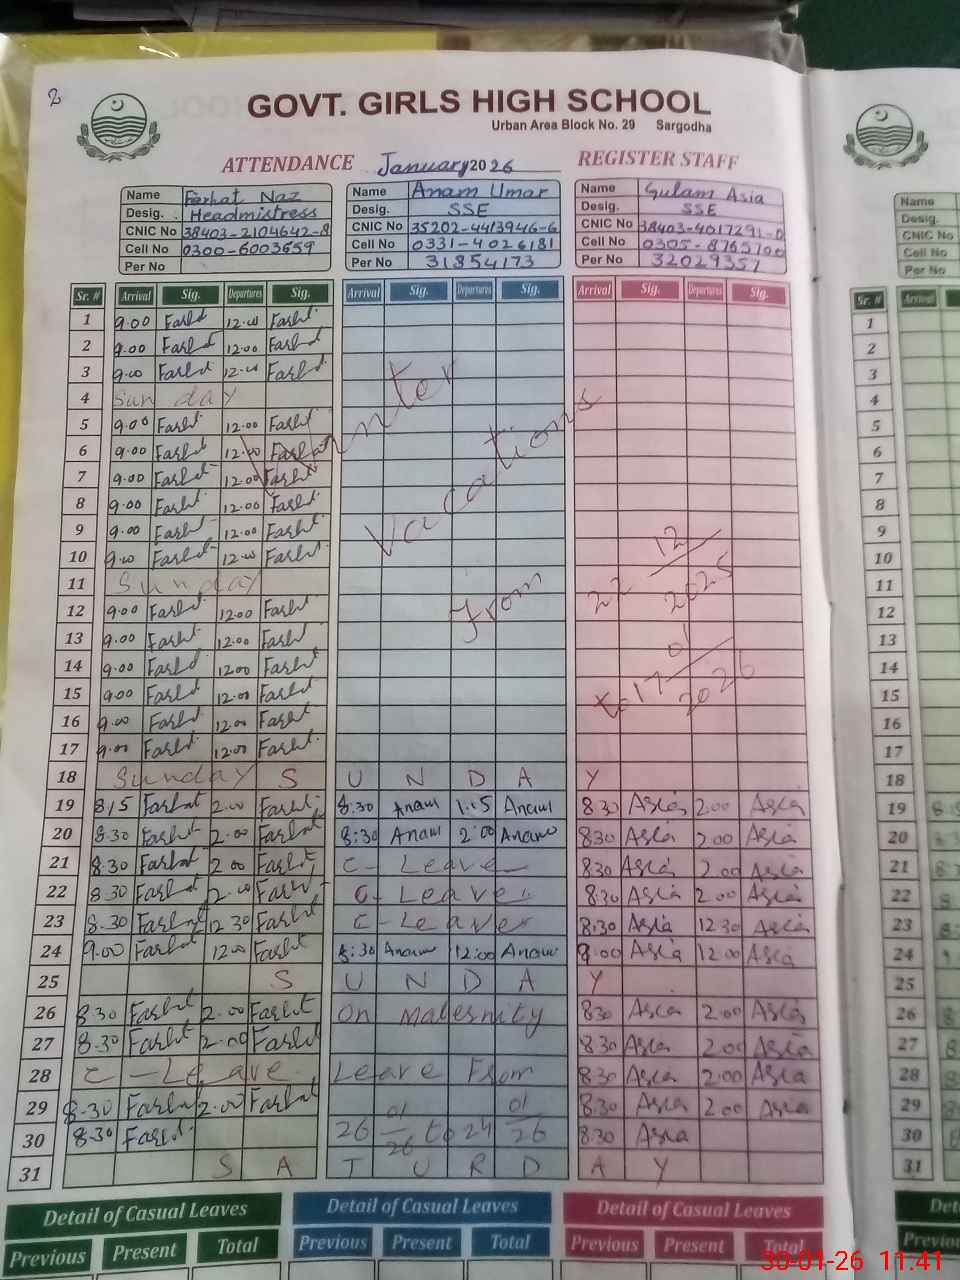 2
GOVT. GIRLS HIGH SCHOOL
Urban Area Block No. 29 Sargodha
ATTENDANCE January 2026 REGISTER STAFF
Name Farhat Naz
Desig. Headmistress
CNIC No 38403-2104642-8
Cell No 0300-6003659
Per No
Name Anam Umar
Desig. SSE
CNIC No 35202-4413946-6
Cell No 0331-4026181
Per No 31854173
Name Gulam Asia
Desig. SSE
CNIC No 38403-4017291-0
Cell No 0305-8765700
Per No 32029357
Name
Desig.
CNIC No
Cell No
Per No
Sr. # Arrival Sig. Departures Sig. Arrival Sig. Departures Sig. Arrival Sig. Departures Sig. Sr. # Arrival
1 9.00 Farht 12.00 Farht 1
2 9.00 Farht 12.00 Farht 2
3 9.00 Farht 12.00 Farht 3
4 Sunday 4
5 9.00 Farht 12.00 Farht 5
6 9.00 Farht 12.00 Farht 6
7 9.00 Farht 12.00 Farht 7
8 9.00 Farht 12.00 Farht 8
9 9.00 Farht 12.00 Farht 9
10 9.00 Farht 12.00 Farht 10
11 Sunday 11
12 9.00 Farht 12.00 Farht 12
13 9.00 Farht 12.00 Farht 13
14 9.00 Farht 12.00 Farht 14
15 9.00 Farht 12.00 Farht 15
16 9.00 Farht 12.00 Farht 16
17 9.00 Farht 12.00 Farht 17
Winter Vacations From 22 12/2025 to 17 01/2026
18 Sunday S U N D A Y 18
19 815 Farhat 2.00 Farht 8:30 Anam 1:15 Anam 8.30 Asia 2.00 Asia 19
20 8.30 Farht 2.00 Farht 8:30 Anam 2:00 Anam 8.30 Asia 2.00 Asia 20
21 8.30 Farhat 2.00 Farht C-Leave 8.30 Asia 2.00 Asia 21
22 8.30 Farhat 2.00 Farht C-Leave 8.30 Asia 2.00 Asia 22
23 8.30 Farhat 12.30 Farht C-Leave 8.30 Asia 12.30 Asia 23
24 9.00 Farhat 12.00 Farht 8:30 Anam 12:00 Anam 9.00 Asia 12.00 Asia 24
25 S U N D A Y 25
26 8.30 Farht 2.00 Farht On Maternity 8.30 Asia 2.00 Asia 26
27 8.30 Farht 2.00 Farht 8.30 Asia 2.00 Asia 27
28 C-Leave Leave From 8.30 Asia 2.00 Asia 28
29 8.30 Farhat 2.00 Farhat 8.30 Asia 2.00 Asia 29
30 8.30 Farht 26 01/26 to 24 01/26 8.30 Asia 30
31 S A T U R D A Y 31
Detail of Casual Leaves Detail of Casual Leaves Detail of Casual Leaves
Previous Present Total Previous Present Total Previous Present Total
30-01-26 11.41